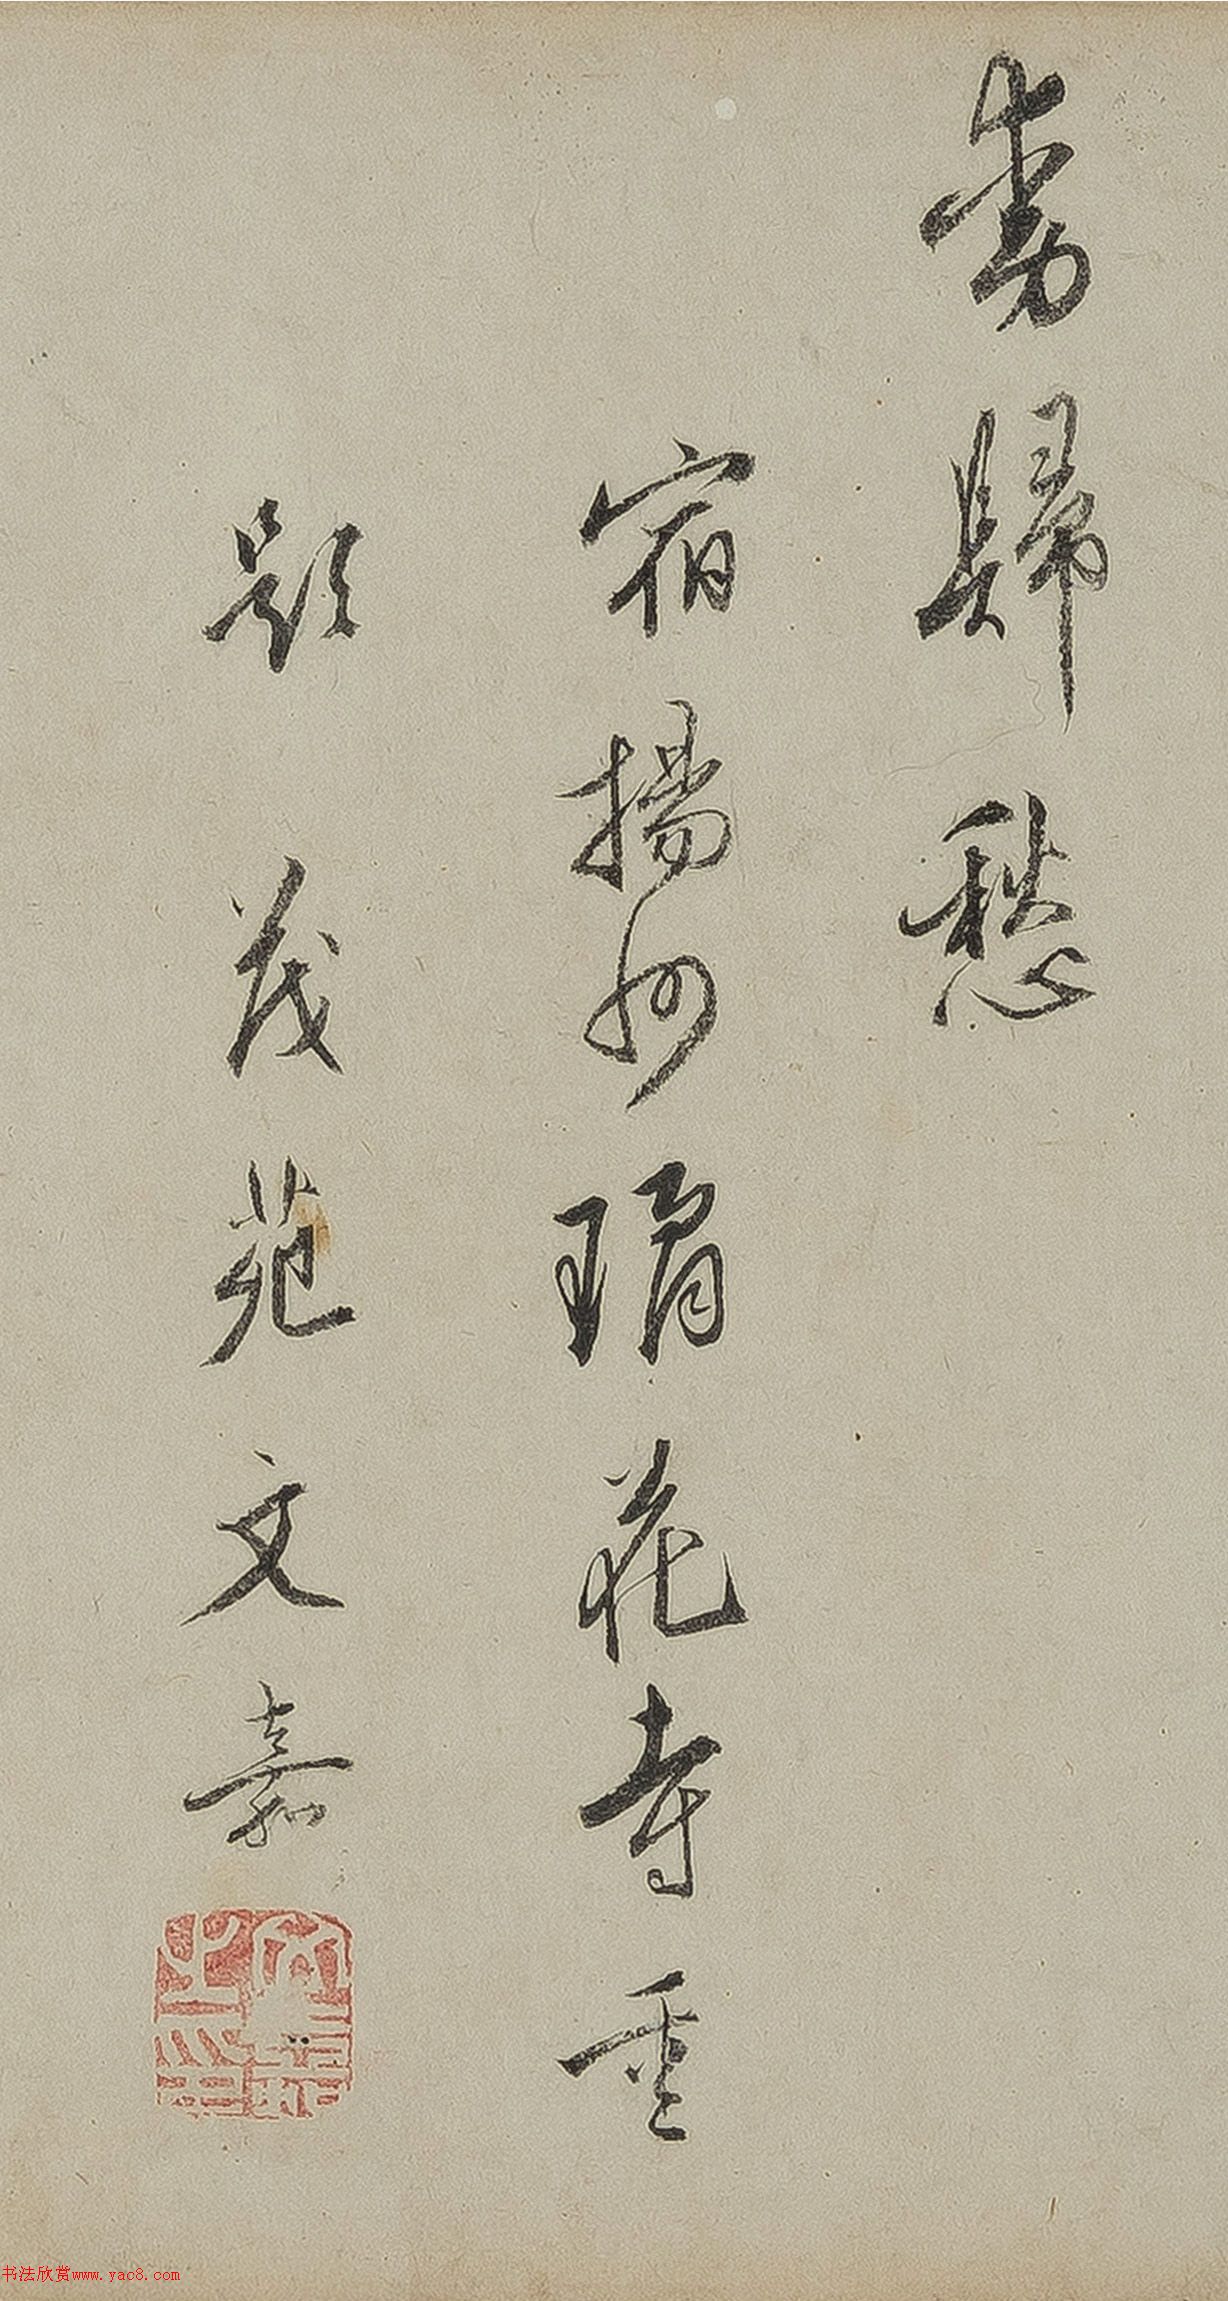 动歸愁
宿揚州瓊花寺重
題 茂苑文嘉
文嘉之印
书法欣赏www.yac8.com